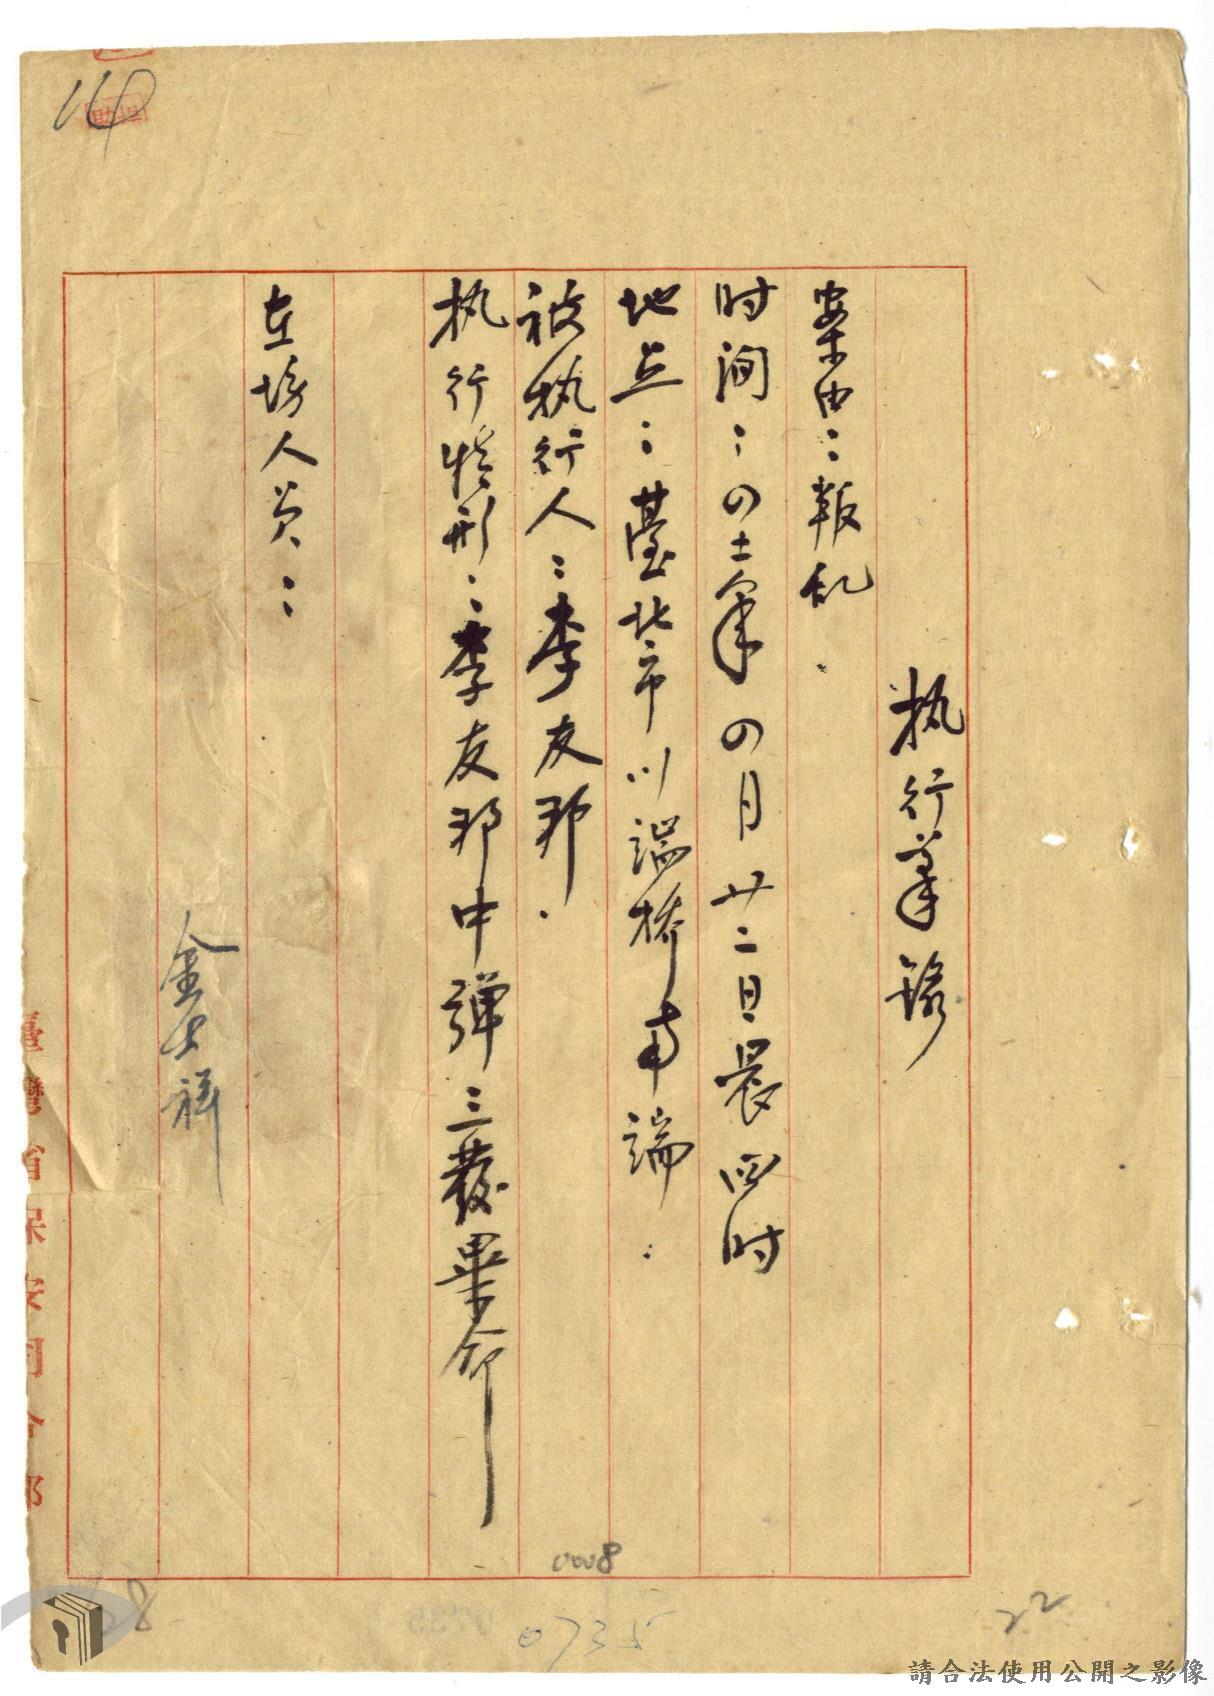 执行筆録
案由：叛乱.
时间：四十一年四月廿二日晨四时
地点：臺北市川端桥南端.
被执行人：李友邦.
执行情形：李友邦中弹三發畢命
在場人员：
金士祥
臺灣省保安司令部
0008
0735
22
請合法使用公開之影像